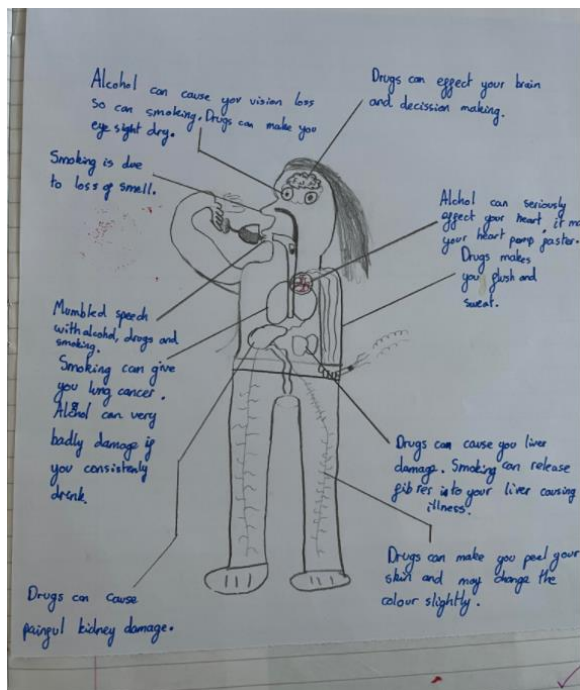 Alcohol can cause your vision loss
so can smoking. Drugs can make you
eye sight dry.
Drugs can effect your brain
and decission making.
Smoking is due
to loss of smell.
Alchol can seriously
effect your heart, it ma
your heart pomp faster.
Drugs makes
you flush and
sweat.
Mumbled speech
with alcohol, drugs and
smoking.
Smoking can give
you lung cancer.
Alchol can very
badly damage if
you consistenly
drink.
Drugs can cause you liver
damage. Smoking can release
fibres into your liver causing
illness.
Drugs can make you peel your
skin and may change the
colour slightly.
Drugs can cause
painful kidney damage.